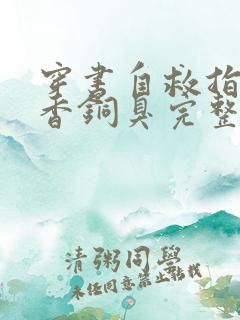 穿书自救指
香銅臭完整
清粥同學
未经同意禁止转载